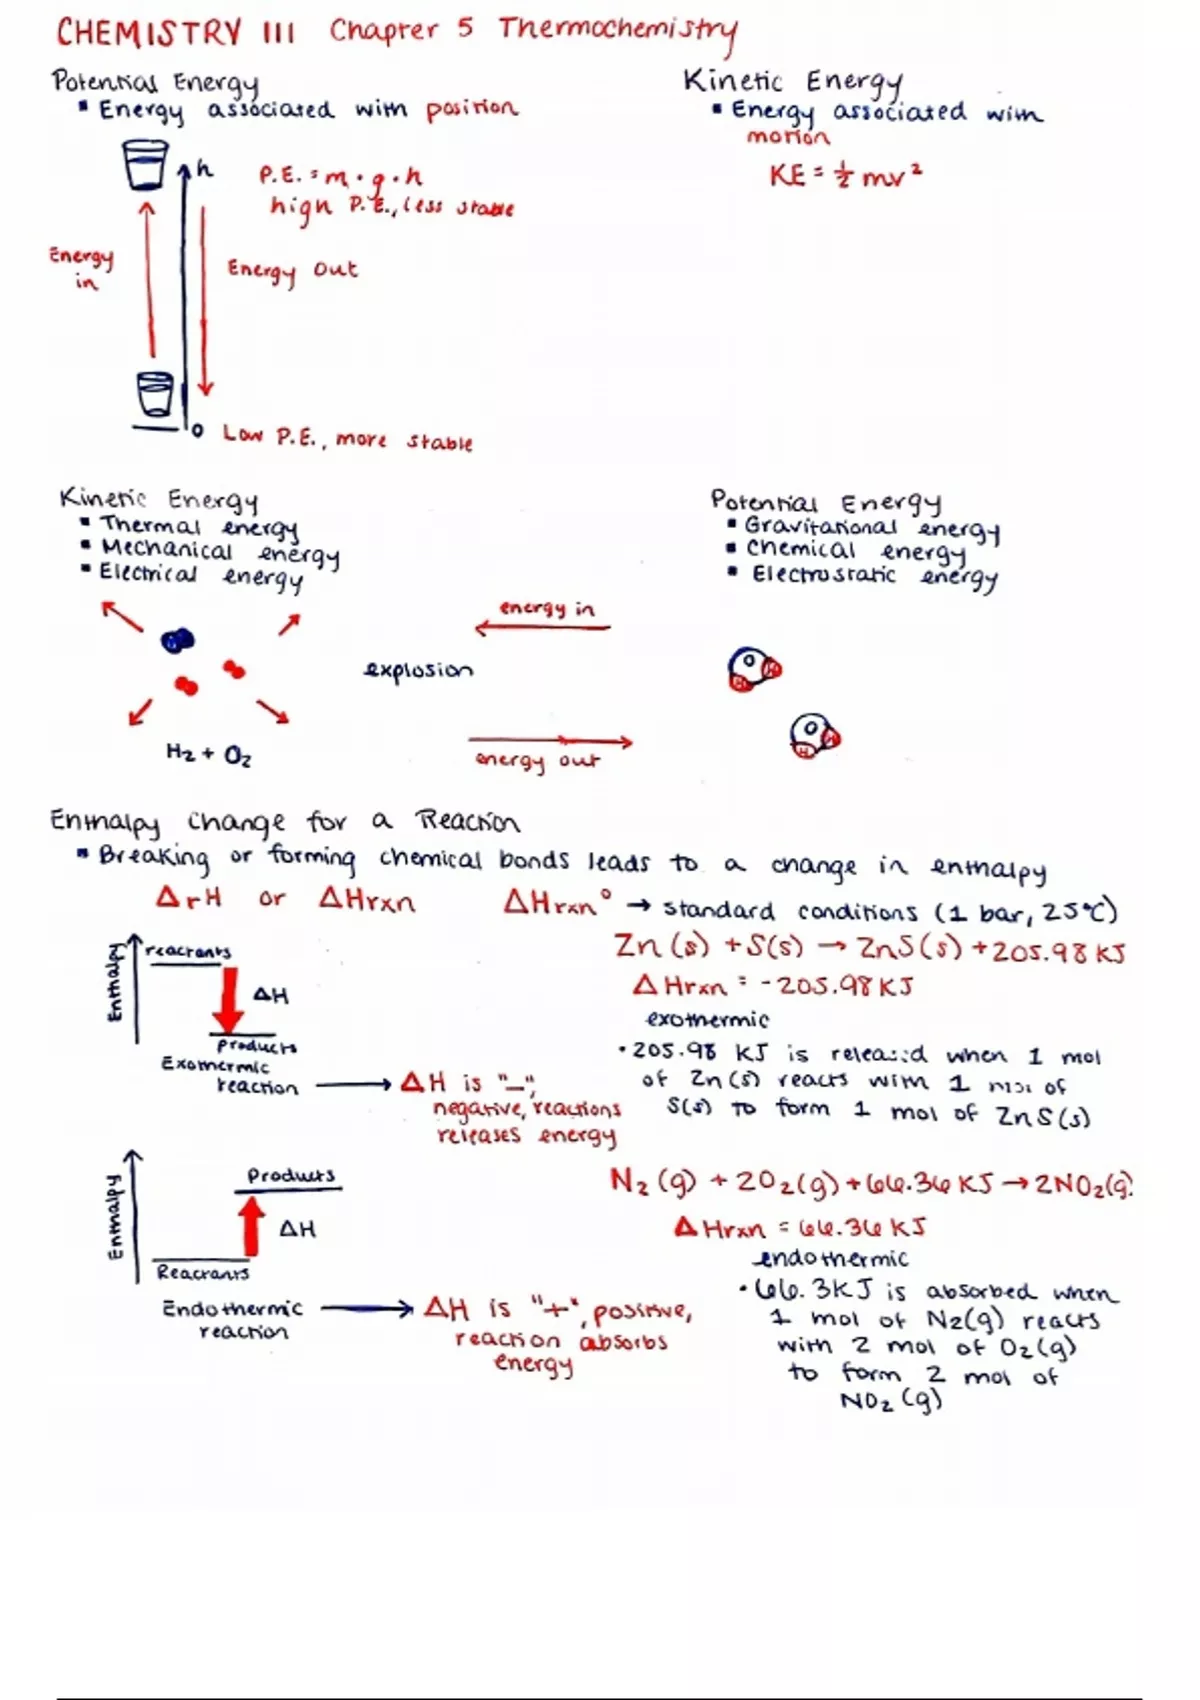 CHEMISTRY III Chapter 5 Thermochemistry
Potential Energy
▪ Energy associated with position
h
P.E. = m · g · h
high P.E., less stable
Energy in
Energy out
0 Low P.E., more stable
Kinetic Energy
▪ Energy associated with
motion
KE = ½ mv²
Kinetic Energy
▪ Thermal energy
▪ Mechanical energy
▪ Electrical energy
H₂ + O₂
explosion
energy in
energy out
Potential Energy
▪ Gravitational energy
▪ Chemical energy
▪ Electrostatic energy
O H H
O H H
Enthalpy Change for a Reaction
▪ Breaking or forming chemical bonds leads to a change in enthalpy
ΔrH or ΔHrxn ΔHrxn° → standard conditions (1 bar, 25°C)
Enthalpy
reactants
ΔH
products
Exothermic
reaction → ΔH is "–",
negative, reactions
releases energy
Zn(s) + S(s) → ZnS(s) + 205.98 KJ
ΔHrxn = -205.98 KJ
exothermic
· 205.98 KJ is released when 1 mol
of Zn(s) reacts with 1 mol of
S(s) to form 1 mol of ZnS(s)
Enthalpy
Products
ΔH
Reactants
Endothermic → ΔH is "+", positive,
reaction
reaction absorbs
energy
N₂(g) + 2O₂(g) + 66.36 KJ → 2NO₂(g)
ΔHrxn = 66.36 KJ
endothermic
· 66.3KJ is absorbed when
1 mol of N₂(g) reacts
with 2 mol of O₂(g)
to form 2 mol of
NO₂(g)